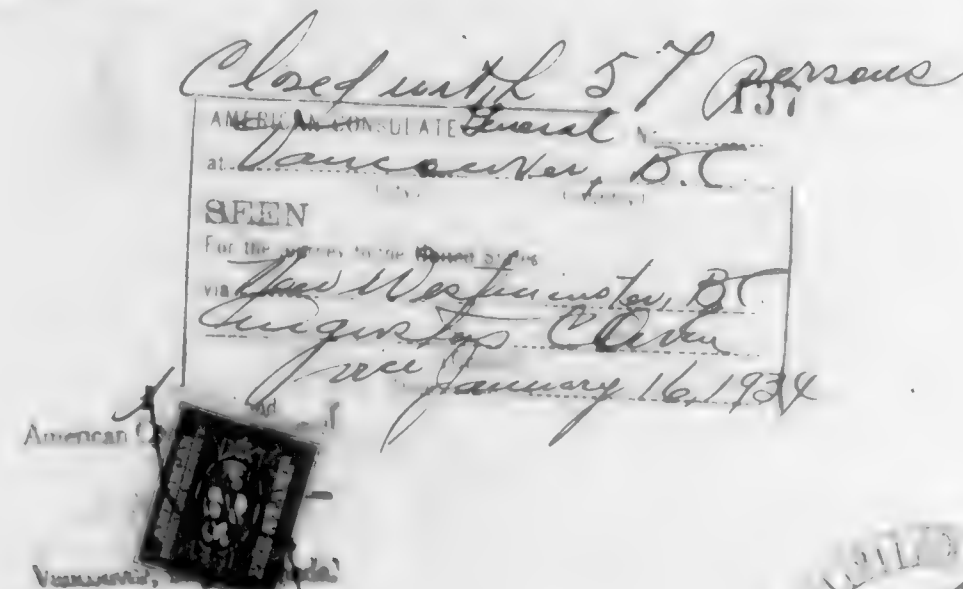 Closed with 57 persons
137
AMERICAN CONSULATE General N
at Vancouver, B.C
SEEN
For the journey to the United States
via New Westminster, B C
Augustus
Vice January 16, 1934
American
Vancouver,